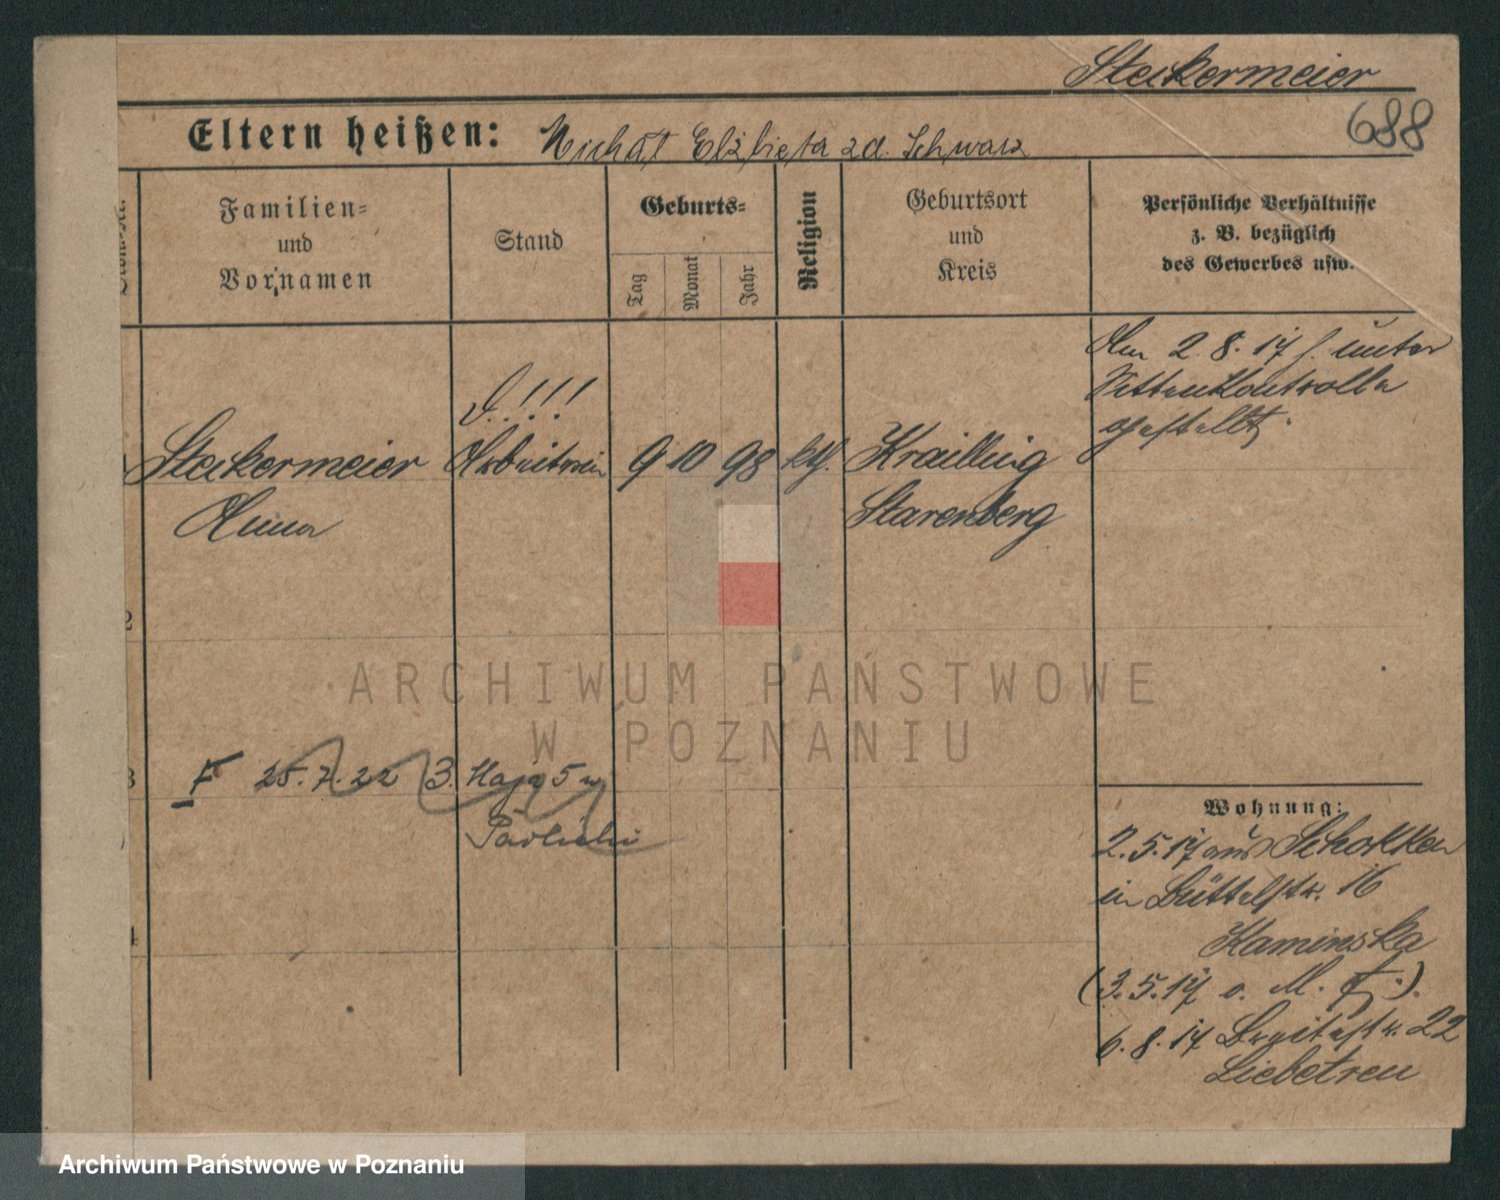 Steckermeier
688
Eltern heißen: Michał Elżbieta zd. Schwarz
Familien-
und
Vornamen
Stand
Geburts-
Tag
Monat
Jahr
Religion
Geburtsort
und
Kreis
Persönliche Verhältnisse
z. B. bezüglich
des Gewerbes usw.
Am 2.8.17 f. unter
Sittenkontrolle
gestellt.
D.!!!
Steckermeier Arbeiterin 9 10 98 kth. Krailling
Anna Starenberg
2
3 25.7.22 3. Maja 5
4
Wohnung:
2.5.17 aus Schokken
in Büttelstr. 16
Kaminska
(3.5.17 o. M.
6.8.17 Breitestr. 22
Liebetreu
ARCHIWUM PAŃSTWOWE
W POZNANIU
Archiwum Państwowe w Poznaniu